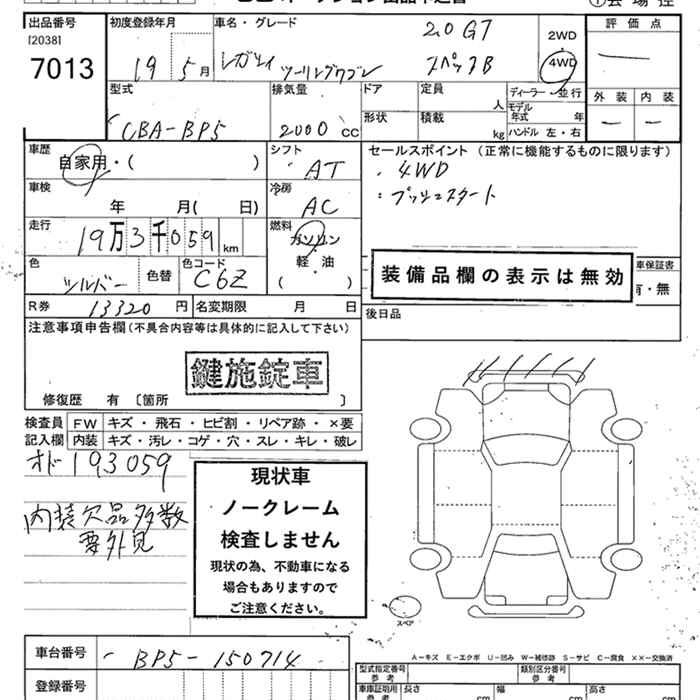 出品番号
[2038]
7013
初度登録年月
19 5 月
車名・グレード
レガシィ ツーリングワゴン
2.0 GT
スペックB
2WD
4WD
評価点
外装 内装
型式
CBA-BP5
排気量
2000 cc
ドア
形状
定員
人
積載
kg
ディーラー・並行
モデル年式 年
ハンドル 左・右
車歴
自家用・( )
シフト
AT
セールスポイント (正常に機能するものに限ります)
・4WD
・プッシュスタート
車検
年 月( 日)
冷房
AC
走行
19万3千059 km
燃料
ガソリン
軽・油
( )
装備品欄の表示は無効
車保証書
有・無
色
シルバー
色替
色コード
C6Z
R券 13320 円
名変期限 月 日
後日品
注意事項申告欄(不具合内容等は具体的に記入して下さい)
鍵施錠車
修復歴 有 〔箇所 〕
検査員記入欄
FW キズ・飛石・ヒビ割・リペア跡・×要
内装 キズ・汚レ・コゲ・穴・スレ・キレ・破レ
オド 193059
内装欠品多数
要外見
現状車
ノークレーム
検査しません
現状の為、不動車になる
場合もありますので
ご注意ください。
スペア
A-キズ E-エクボ U-凹み W-補修跡 S-サビ C-腐食 XX-交換済
車台番号
BP5-150714
登録番号
型式指定番号
参考
類別区分番号
参考
車庫証明用
参考
長さ cm
幅 cm
高さ cm